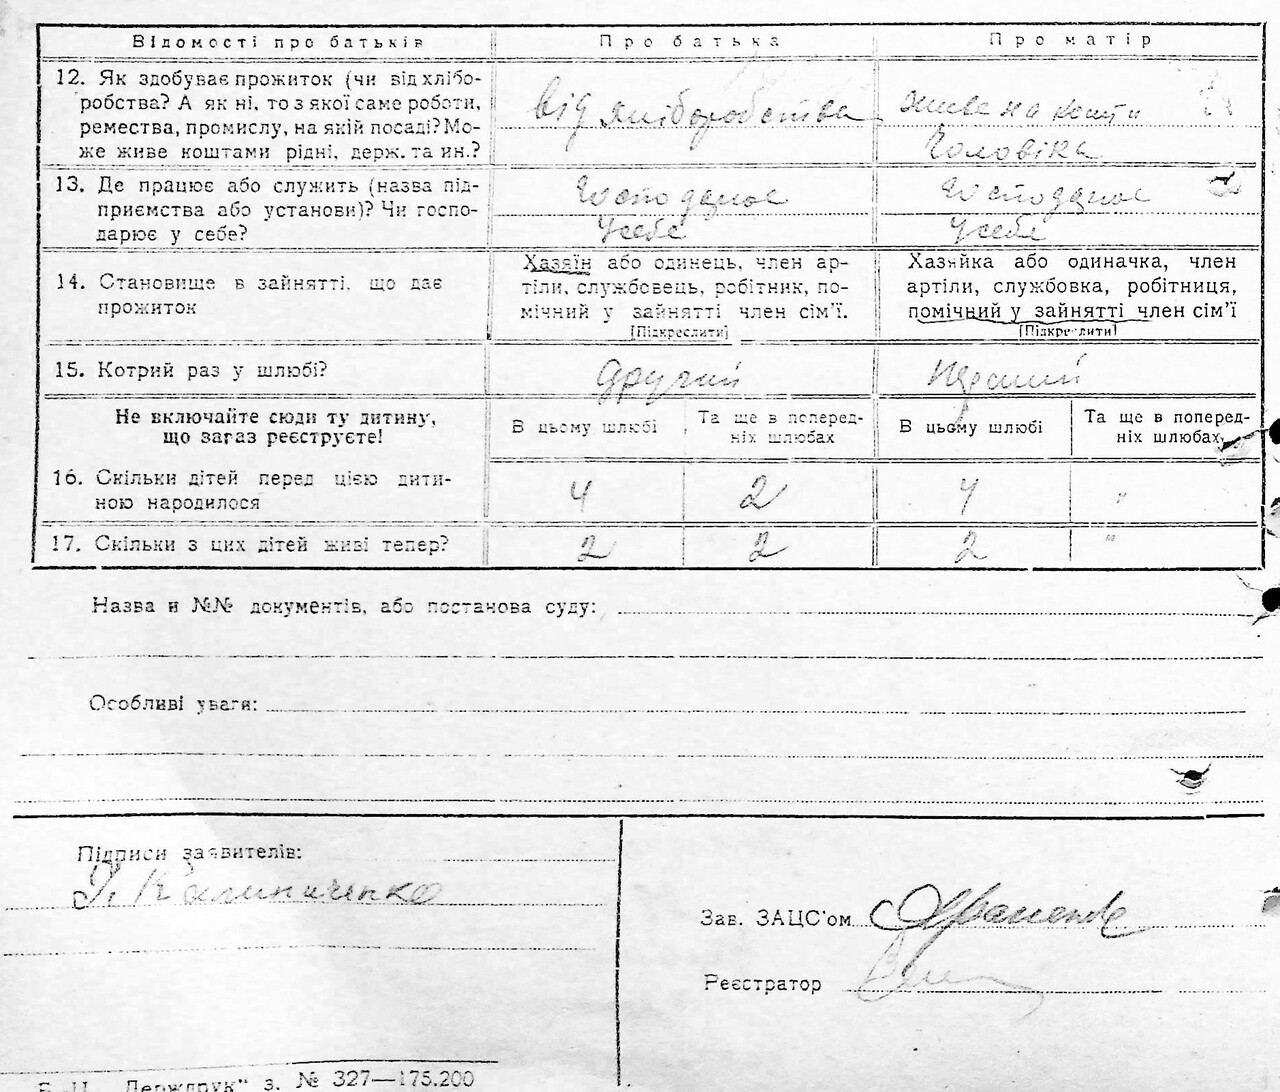 Відомості про батьків Про батька Про матір
12. Як здобуває прожиток (чи від хлібо-
робства? А як ні, то з якої саме роботи,
ремества, промислу, на якій посаді? Мо-
же живе коштами рідні, держ. та ин.?
від хліборобства
живе на кошти
чоловіка
13. Де працює або служить (назва під-
приємства або установи)? Чи госпо-
дарює у себе?
Господарює
у себе
Господарює
у себе
14. Становище в зайнятті, що дає
прожиток
Хазяїн або одинець, член ар-
тіли, службовець, робітник, по-
мічний у зайнятті член сім'ї.
[Підкреслити]
Хазяйка або одиначка, член
артіли, службовка, робітниця,
помічний у зайнятті член сім'ї
[Підкреслити]
15. Котрий раз у шлюбі? другий перший
Не включайте сюди ту дитину,
що зараз реєструєте!
В цьому шлюбі
Та ще в поперед-
ніх шлюбах
В цьому шлюбі
Та ще в поперед-
ніх шлюбах
16. Скільки дітей перед цією дити-
ною народилося
4 2 4 "
17. Скільки з цих дітей живі тепер? 2 2 2 "
Назва и №№ документів, або постанова суду:
Особливі уваги:
Підписи заявителів:
Калиниченко
Зав. ЗАЦС'ом
Реєстратор
"Держдрук" з. № 327—175.200